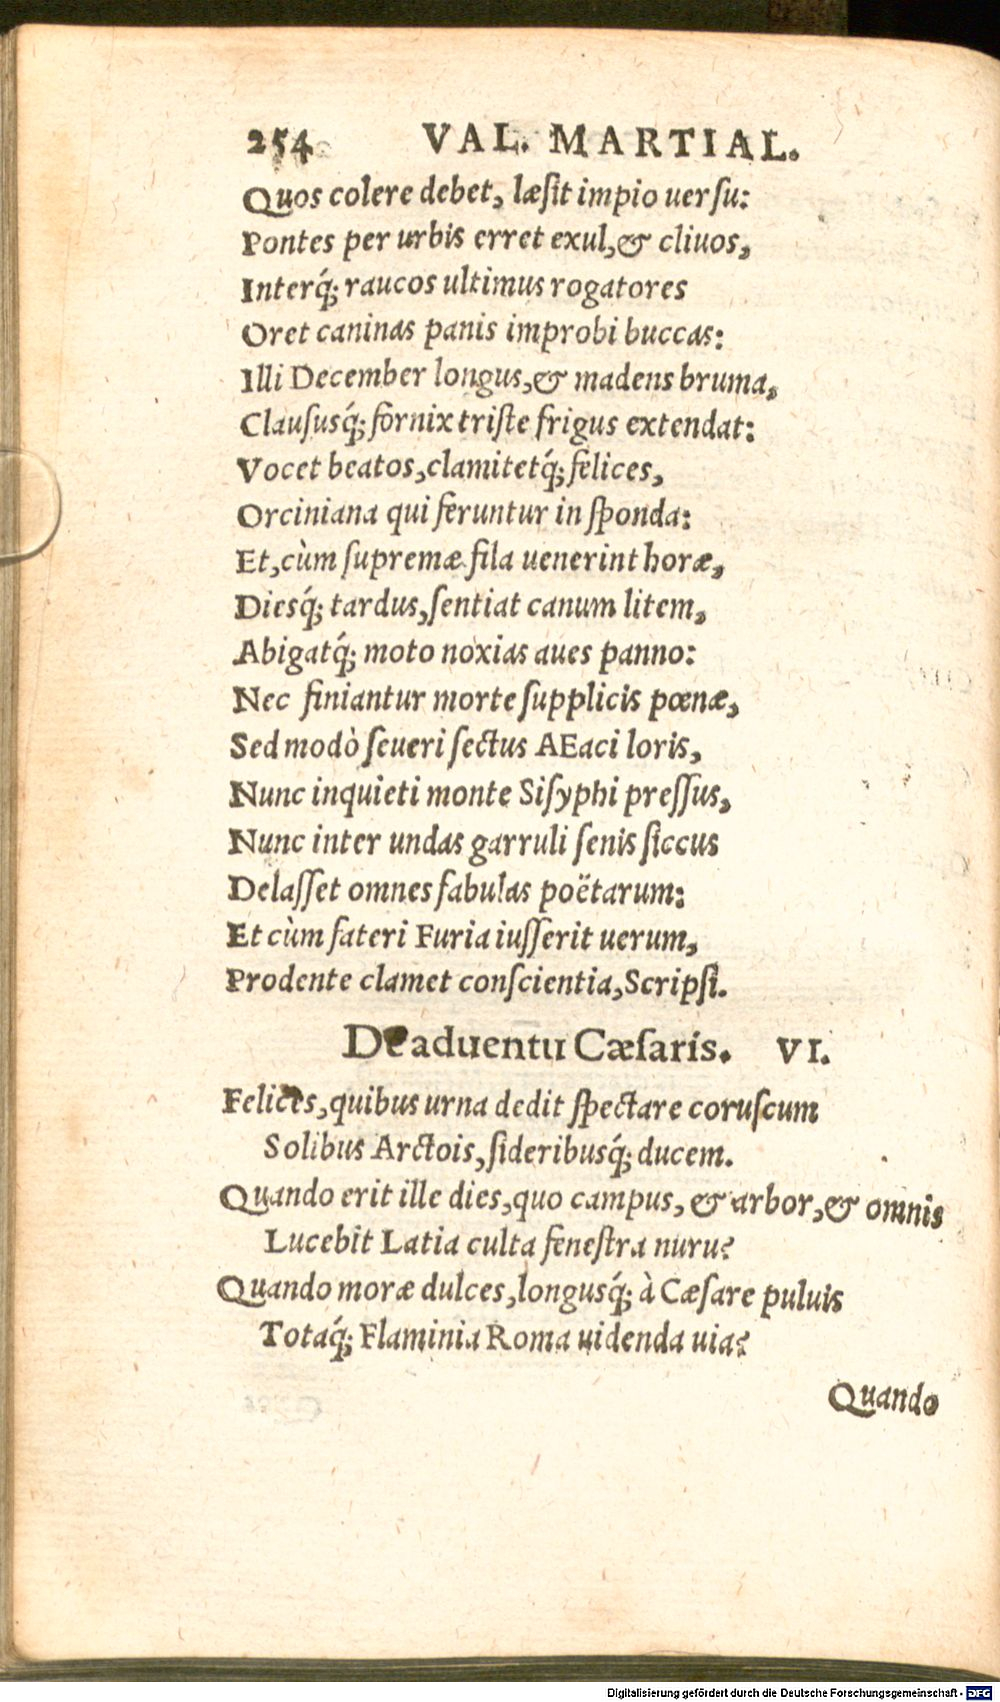 254 VAL. MARTIAL.
Quos colere debet, læſit impio uerſu:
Pontes per urbis erret exul,& cliuos,
Interq́; raucos ultimus rogatores
Oret caninas panis improbi buccas:
Illi December longus,& madens bruma,
Clauſusq́; fornix triſte frigus extendat:
Vocet beatos,clamitetq́; felices,
Orciniana qui feruntur in ſponda:
Et,cùm ſupremæ fila uenerint horæ,
Diesq́; tardus,ſentiat canum litem,
Abigatq́; moto noxias aues panno:
Nec finiantur morte ſupplicis pœnæ,
Sed modò ſeueri ſectus AEaci loris,
Nunc inquieti monte Siſyphi preſſus,
Nunc inter undas garruli ſenis ſiccus
Delaſſet omnes fabulas poëtarum:
Et cùm fateri Furia iuſſerit uerum,
Prodente clamet conſcientia,Scripſi.
De aduentu Cæſaris. VI.
Felices,quibus urna dedit ſpectare coruſcum
Solibus Arctois,ſideribusq́; ducem.
Quando erit ille dies,quo campus, & arbor,& omnis
Lucebit Latia culta feneſtra nuru?
Quando moræ dulces,longusq́; à Cæſare puluis
Totaq́; Flaminia Roma uidenda uia?
Quando
Digitalisierung gefördert durch die Deutsche Forschungsgemeinschaft - DFG